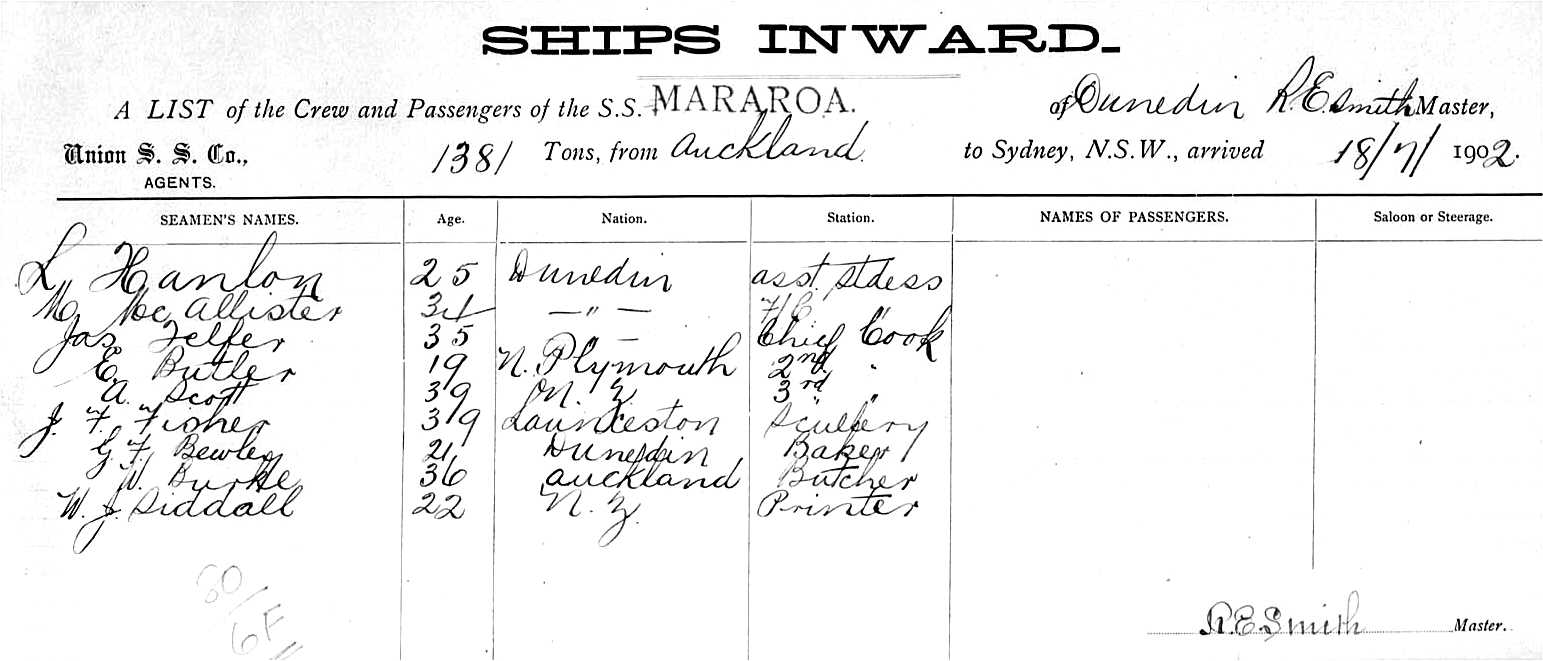 SHIPS INWARD.
A LIST of the Crew and Passengers of the S.S. MARAROA. of Dunedin R. E. Smith Master,
Union S. S. Co., AGENTS. 1381 Tons, from Auckland. to Sydney, N.S.W., arrived 18/7/ 1902.
SEAMEN'S NAMES. Age. Nation. Station. NAMES OF PASSENGERS. Saloon or Steerage.
L Hanlon 25 Dunedin asst. stdess
M McAllister 31 — " — F/C
Jas Telfer 35 " — Chief Cook
E. Butler 19 N. Plymouth 2nd "
A. Scott 39 N. Z. 3rd "
J. F. Fisher 39 Launceston Scullery
G F. Bewley 21 Dunedin Baker
W. Burke 36 Auckland Butcher
W. J. Siddall 22 N. Z. Printer
60/
6F
R. E. Smith Master.